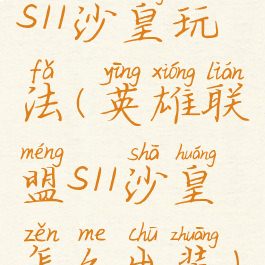 S11沙皇玩
fǎ yīng xióng lián
法(英雄联
méng shā huáng
盟S11沙皇
zěn me chū zhuāng
怎么出装)